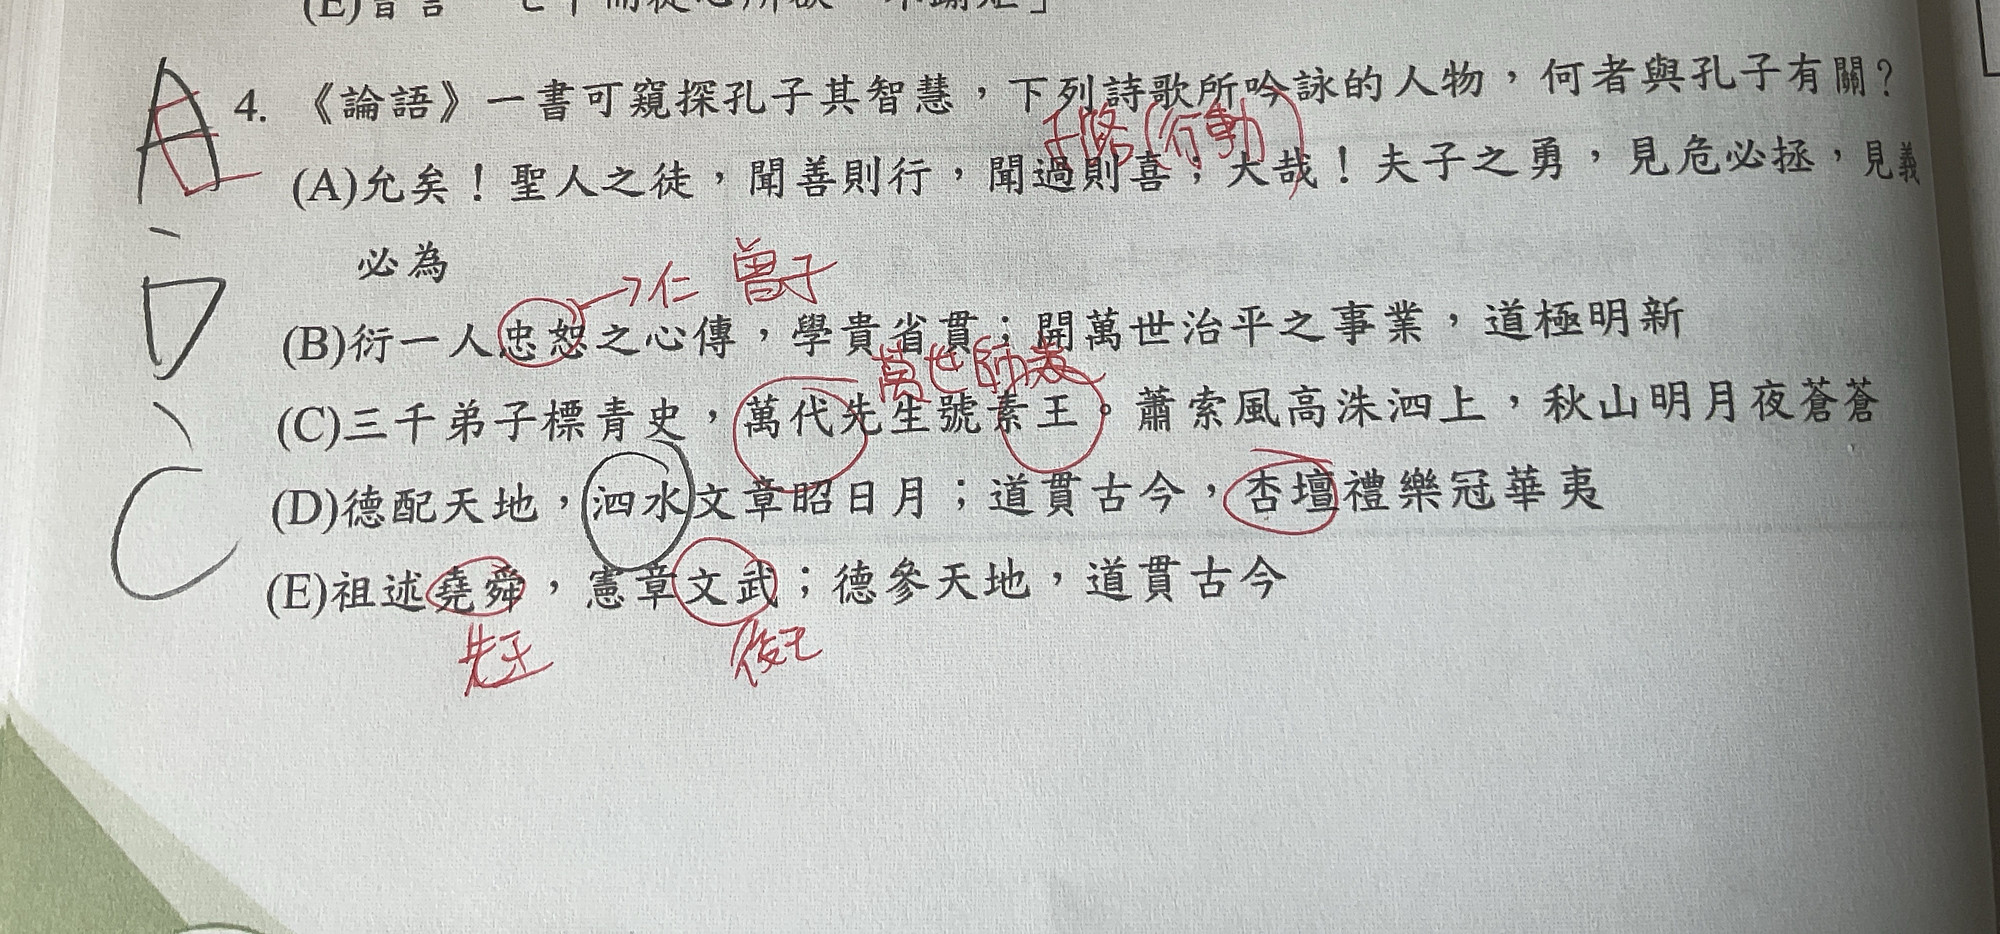 (E)曾言「七十而從心所欲，不踰矩」
A、D、C
4. 《論語》一書可窺探孔子其智慧，下列詩歌所吟詠的人物，何者與孔子有關？
子路(行動)
(A)允矣！聖人之徒，聞善則行，聞過則喜；大哉！夫子之勇，見危必拯，見義
必為
→仁 曾子
(B)衍一人忠恕之心傳，學貴省貫；開萬世治平之事業，道極明新
萬世師表
(C)三千弟子標青史，萬代先生號素王。蕭索風高洙泗上，秋山明月夜蒼蒼
(D)德配天地，泗水文章昭日月；道貫古今，杏壇禮樂冠華夷
(E)祖述堯舜，憲章文武；德參天地，道貫古今
先王 後王